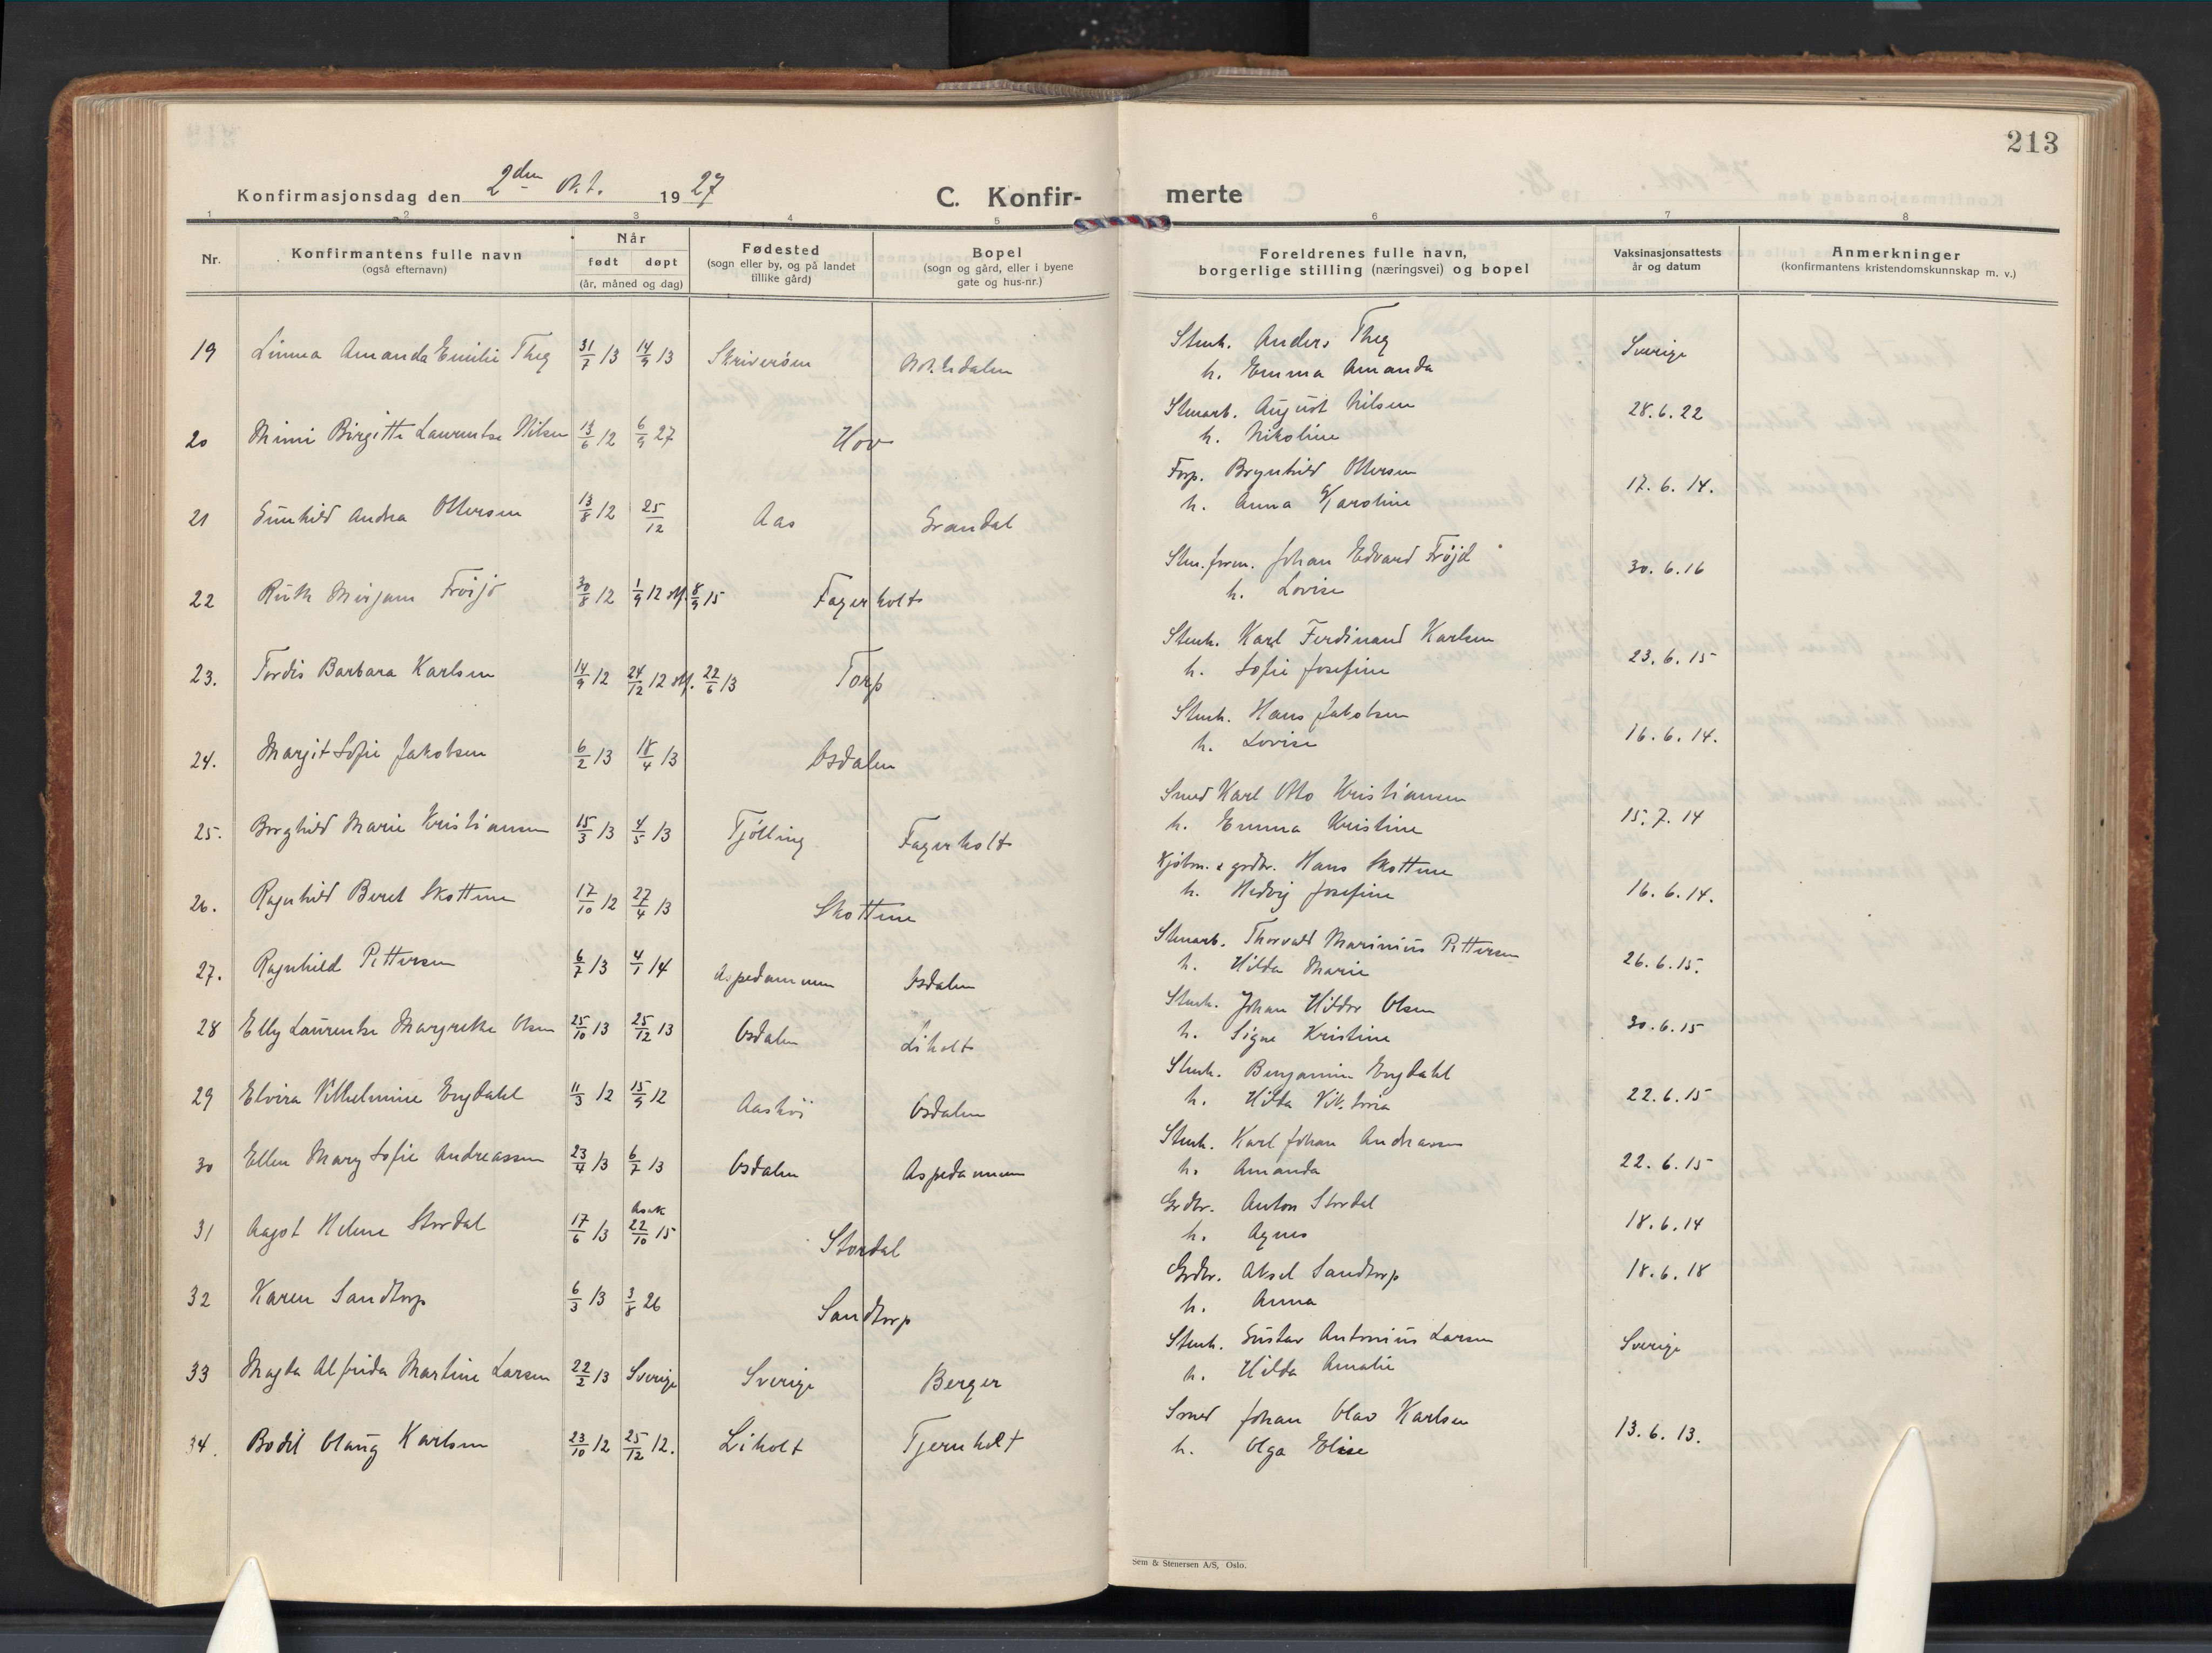 213
Konfirmasjonsdag den 2den Okt. 1927 C. Konfir- merte
1 2 3 4 5 6 7 8
Nr. Konfirmantens fulle navn (også efternavn) Når født døpt (år, måned og dag) Fødested (sogn eller by, og på landet tillike gård) Bopel (sogn og gård, eller i byene gate og hus-nr.) Foreldrenes fulle navn, borgerlige stilling (næringsvei) og bopel Vaksinasjonsattests år og datum Anmerkninger (konfirmantens kristendomskunnskap m. v.)
19 Linnea Amanda Emilie Theg 31/7 13 14/9 13 Stenh. Anders Theg Sverige
h. Emma Amanda
20 Mimi Birgitte Laurentse Nilsen 13/6 12 6/9 27 Hov Stenarb. August Nilsen 28.6.22
h. Nikoline
21 Gunhild Andrea Ottersen 13/8 12 25/12 Aas Grandal Forp. Brynhild Ottersen 17.6.14.
h. Anna Karoline
22 Ruth Mirjam Fröijd 30/8 12 1/9 12 stf. 8/9 15 Fagerholt Stenform. Johan Edvard Fröjd 30.6.16
h. Lovise
23. Tordis Barbara Karlsen 14/9 12 24/12 12 stf. 22/6 13 Torp Stenh. Karl Ferdinand Karlsen 23.6.15
h. Sofie Josefine
24. Margit Sofie Jakobsen 6/2 13 18/4 13 Osdalen Stenh. Hans Jakobsen 16.6.14.
h. Lovise
25. Borghild Marie Kristiansen 15/3 13 4/5 13 Tjölling Fagerholt Smed Karl Otto Kristiansen 15.7.14
h. Emma Kristine
26. Ragnhild Beret Skottene 17/10 12 27/4 13 Skottene Kjøbm. & grdbr. Hans Skottene 16.6.14.
h. Hedvig Josefine
27. Ragnhild Pettersen 6/7 13 4/1 14 Aspedammen Osdalen Stenarb. Thorvald Marinius Pettersen 26.6.15.
h. Hilda Marie
28 Elly Laurentse Margrethe Olsen 25/10 13 25/12 13 Osdalen Liholt Stenh. Johan Hildor Olsen 30.6.15
h. Signe Kristine
29 Elvira Vilhelmine Engdahl 11/3 12 15/9 12 Osdalen Stenh. Benjamin Engdahl 22.6.15
h. Hilda Viktoria
30 Ellen Mary Sofie Andreassen 23/4 13 6/7 13 Osdalen Aspedammen Stenh. Karl Johan Andreassen 22.6.15
h. Amanda
31 Aagot Helene Stordal 17/6 13 Asak 22/10 15 Stordal Grdbr. Anton Stordal 18.6.14
h. Agnes
32 Karen Sandtorp 6/3 13 3/8 26 Sandtorp Grdbr. Aksel Sandtorp 18.6.18
h. Anna
33 Magda Alfrida Martine Larsen 22/2 13 Sverige Sverige Berger Stenh. Gustav Antonius Larsen Sverige
h. Hilda Amalie
34. Bodil Olaug Karlsen 23/10 12 25/12 12. Liholt Tjernholt Smed Johan Olav Karlsen 13.6.13.
h. Olga Elise
Sem & Stenersen A/S, Oslo.